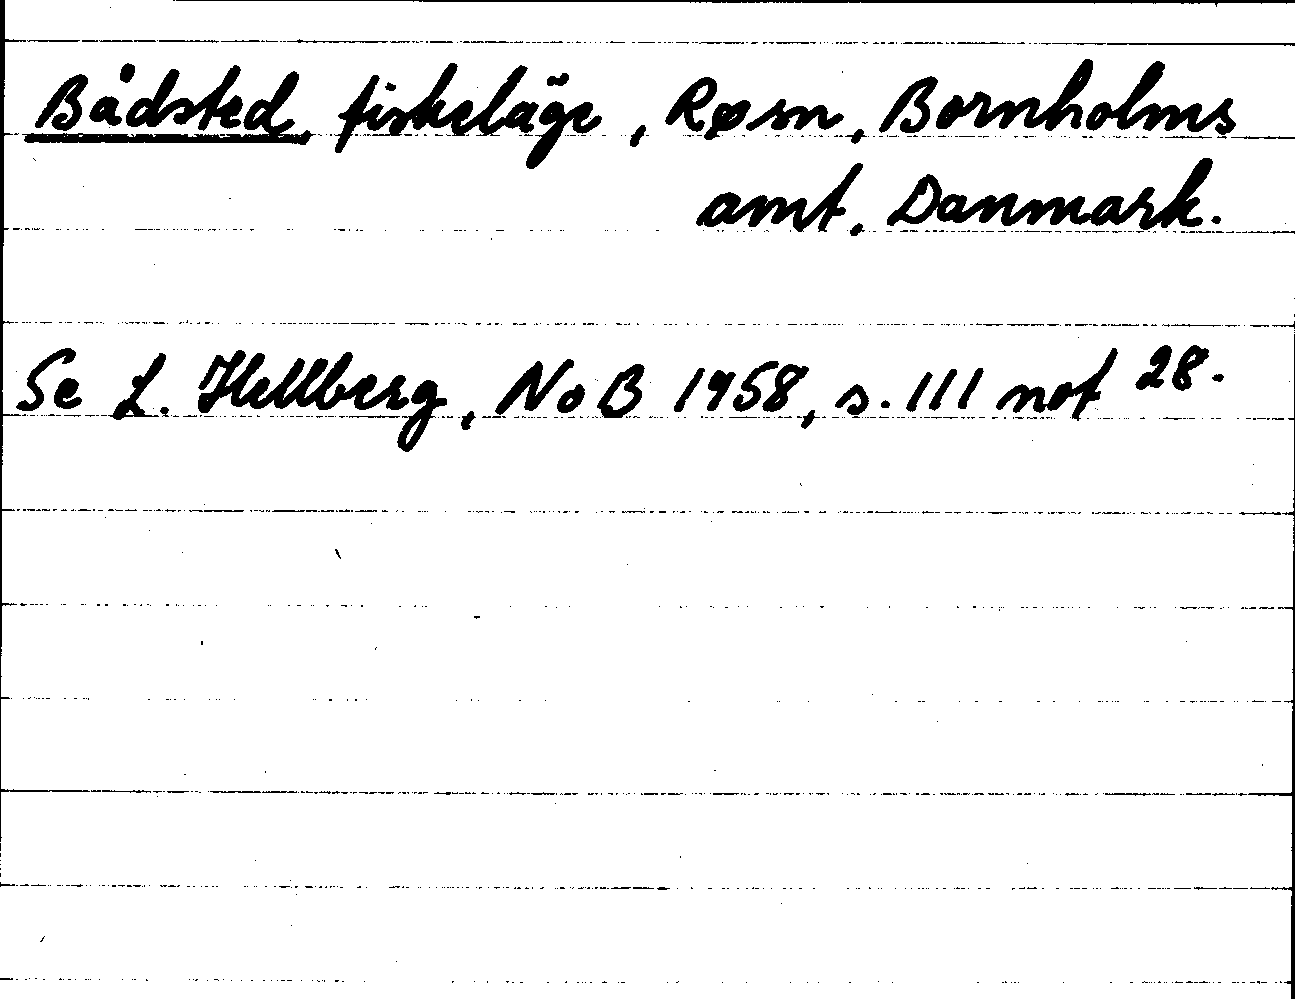 Bådsted, fiskeläge, Røsn, Bornholms
amt, Danmark.
Se L. Hellberg, NoB 1958, s. 111 not 28.